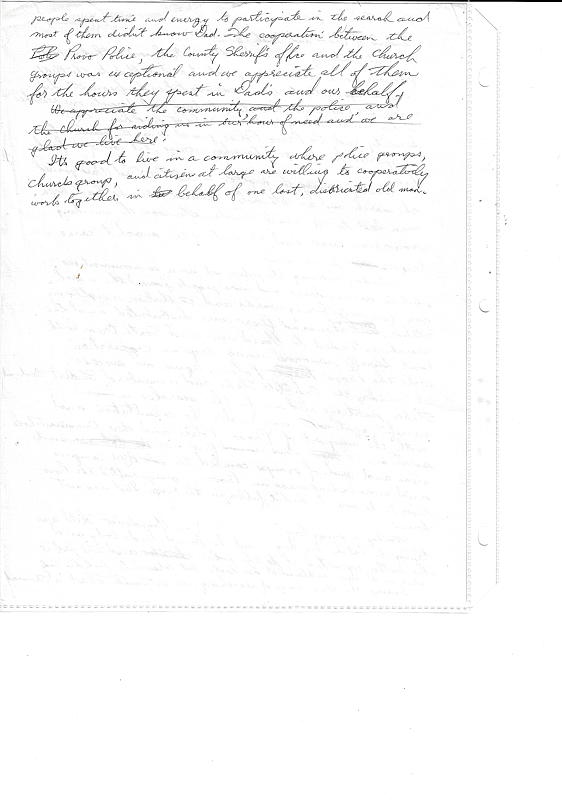 people spent time and energy to participate in the search and
most of them didn't know Dad. The cooperation between the
Provo Police, the County Sherrif's office and the Church
groups was exceptional and we appreciate all of them
for the hours they spent in Dad's and our behalf.
We appreciate the community, and the police and
the church for aiding us in hour of need and we are
glad we live here.
It's good to live in a community where police groups,
church groups, and citizen at large are willing to cooperatively
work together in behalf of one lost, old man.